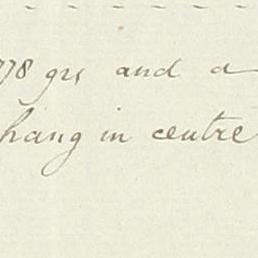 778 grs and a
hang in centre